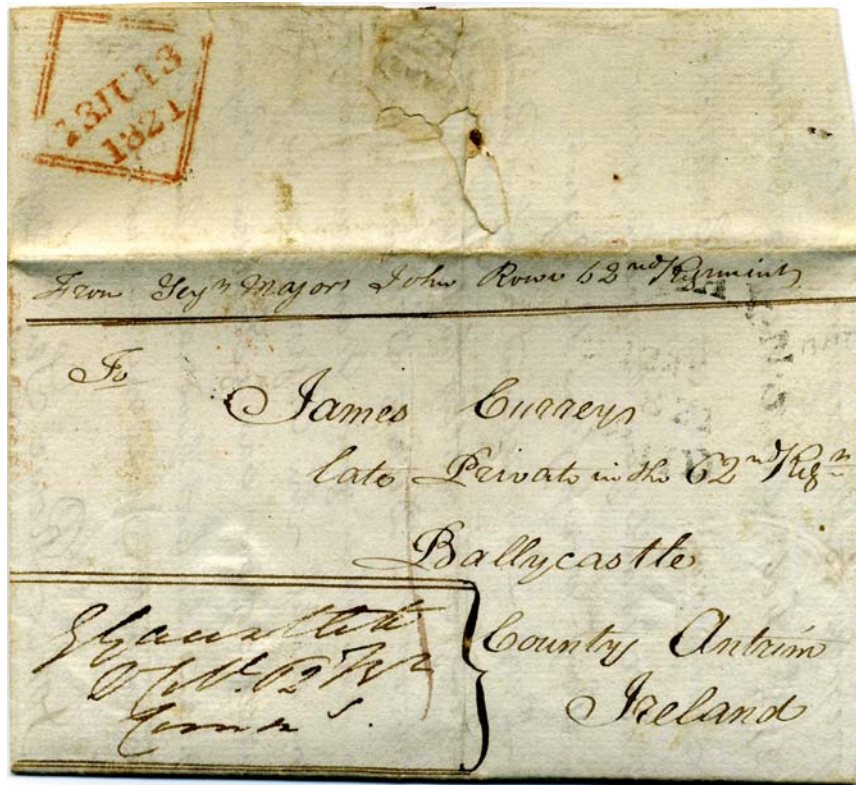 13 JU 13
1821
From Serjn Major John Rowe 62nd Regiment
To
James Currey
late Private in the 62nd Regn
Ballycastle
County Antrim
Ireland
62
Comm